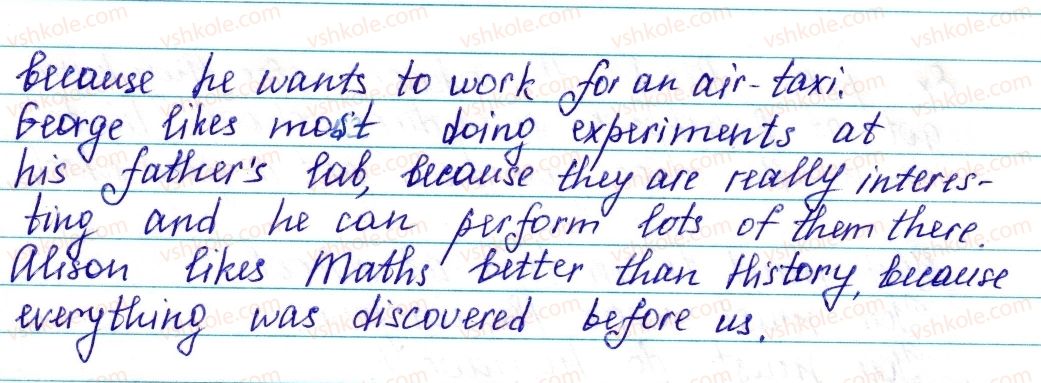 because he wants to work for an air-taxi.
George likes most doing experiments at
his father's lab, because they are really interes-
ting and he can perform lots of them there.
Alison likes Maths better than History, because
everything was discovered before us.